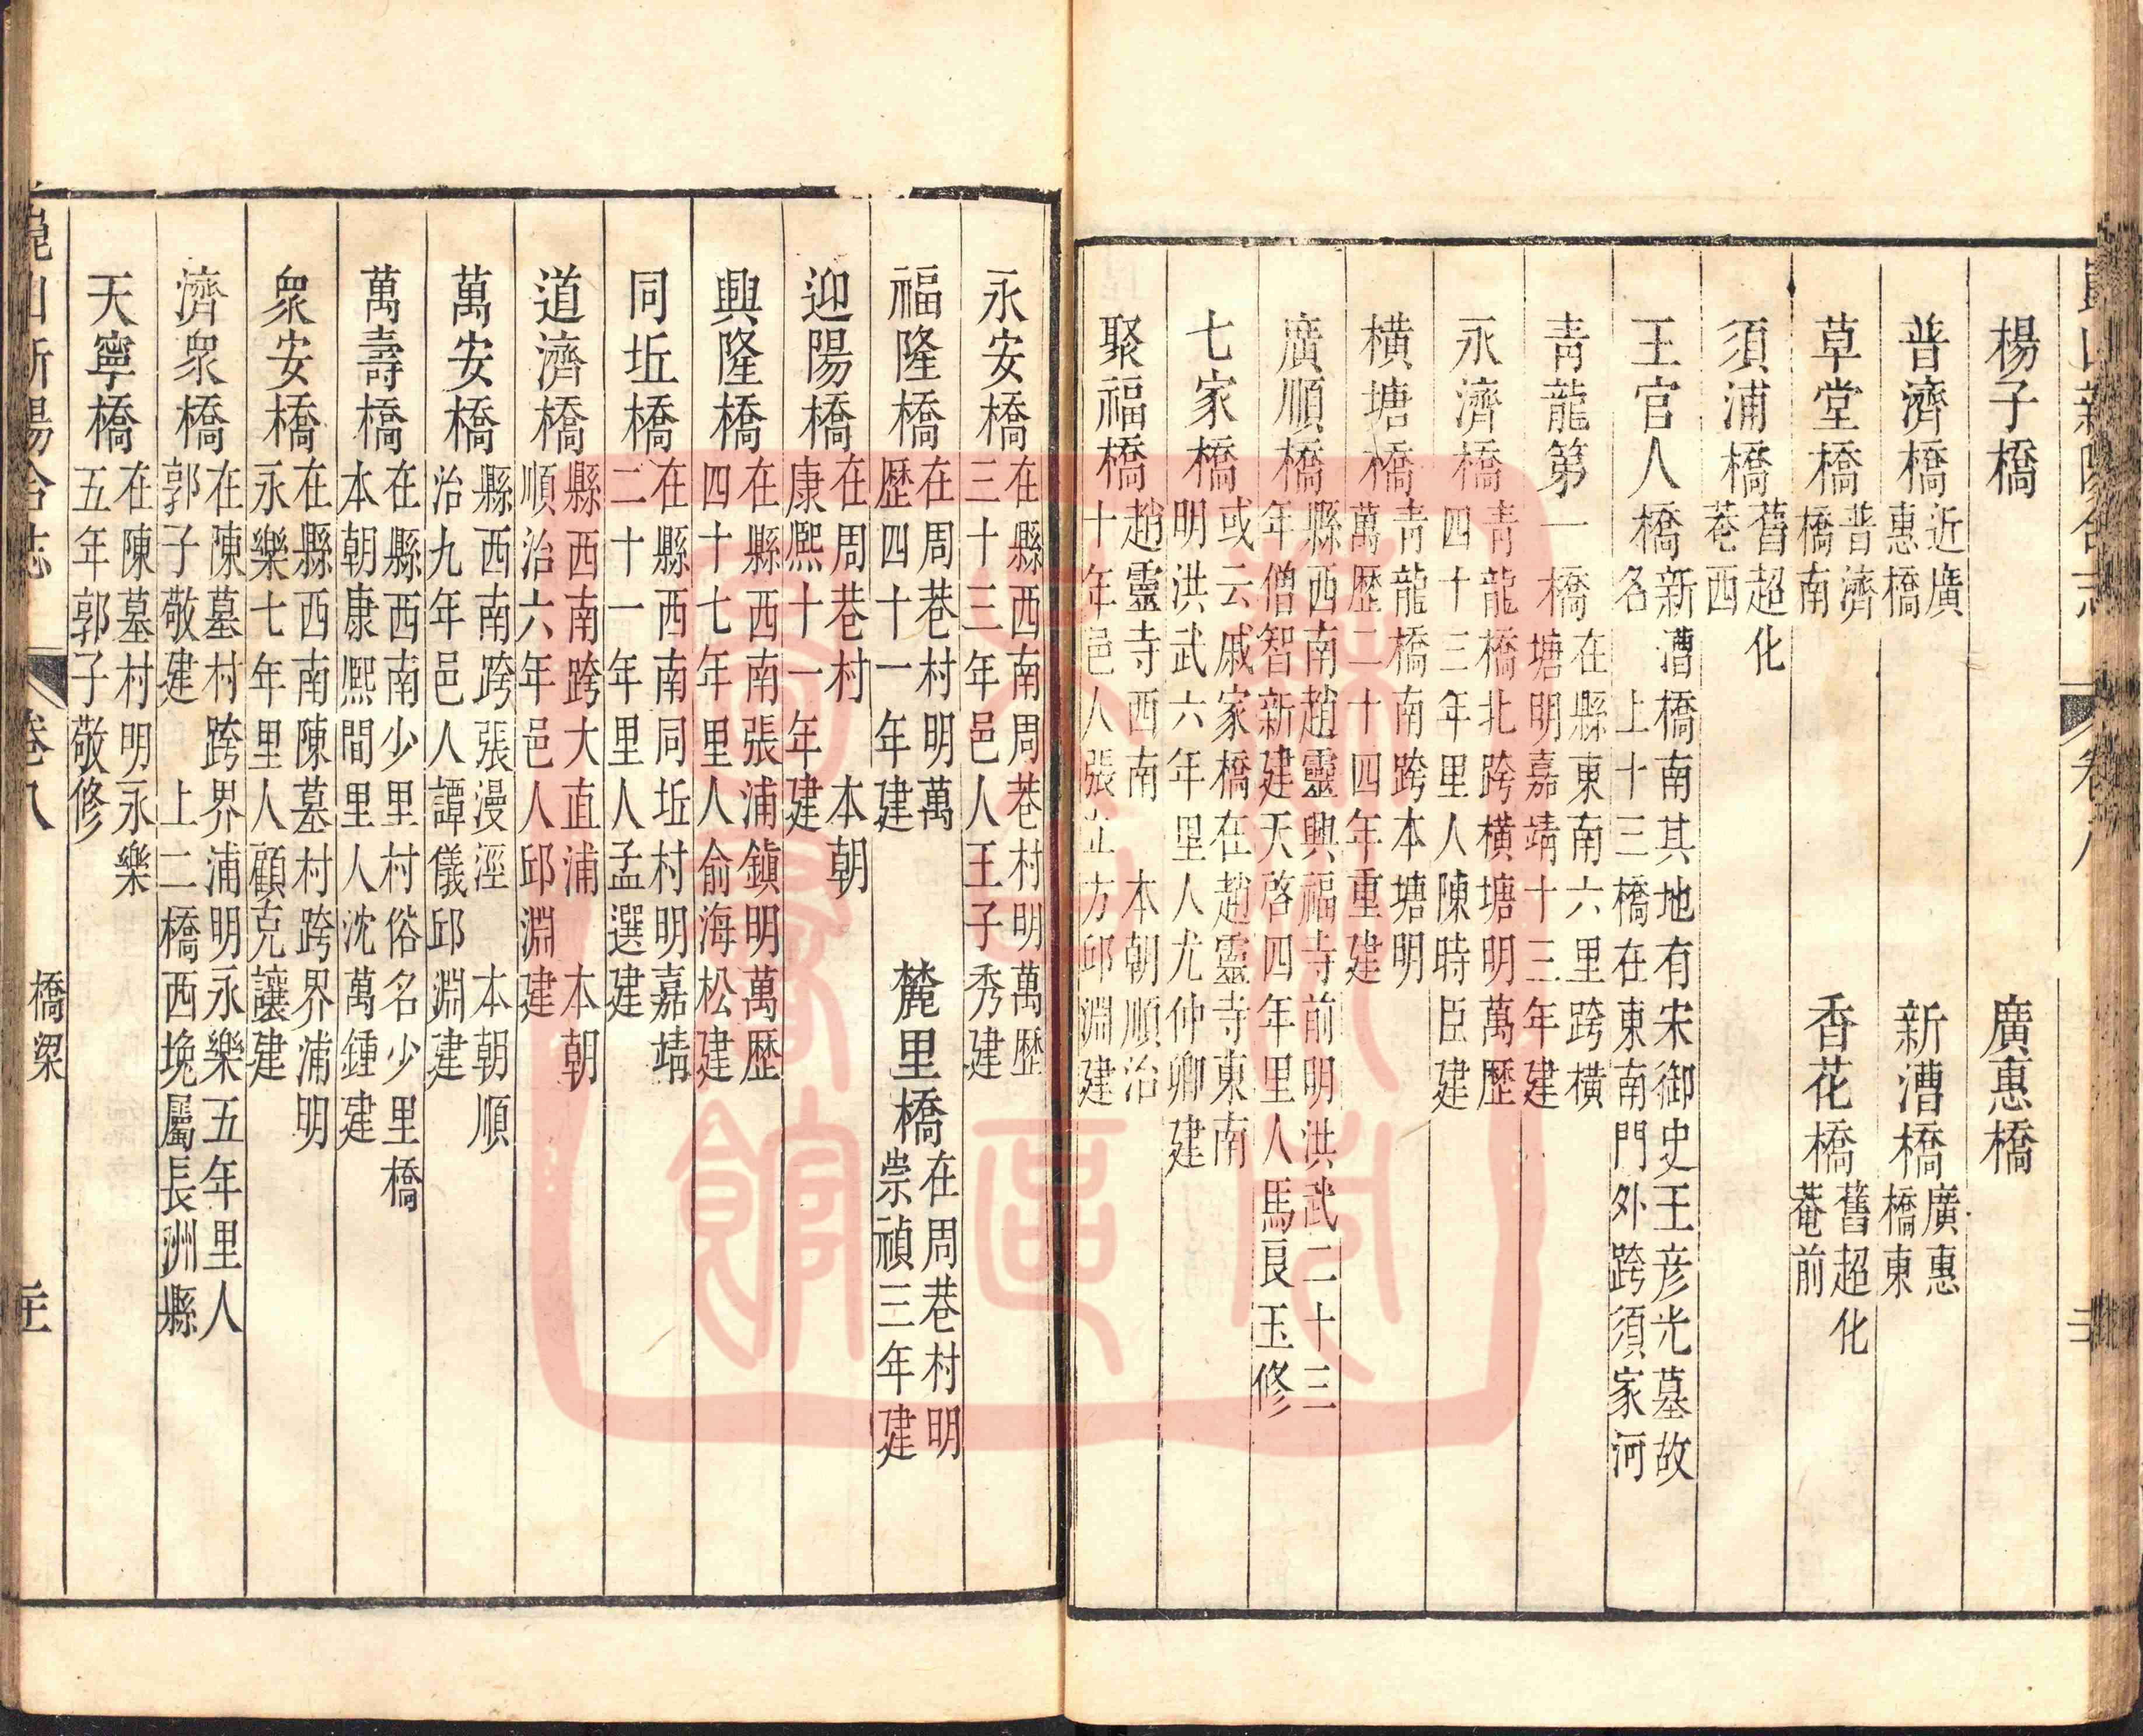 楊子橋 廣惠橋
普濟橋近廣惠橋 新漕橋廣惠橋東
草堂橋普濟橋南 香花橋舊超化菴前
須浦橋舊超化菴西
王官人橋新漕橋南其地有宋御史王彥光墓故名 上十三橋在東南門外跨須家河
青龍第一橋在縣東南六里跨橫塘明嘉靖十三年建
永濟橋青龍橋北跨橫塘明萬歷四十三年里人陳時臣建
橫塘橋青龍橋南跨本塘明萬歷二十四年重建
廣順橋縣西南趙靈興福寺前明洪武二十三年僧智新建天啓四年里人馬良玉修
七家橋或云戚家橋在趙靈寺東南明洪武六年里人尤仲卿建
聚福橋趙靈寺西南 本朝順治十年邑人張立方邱淵建
永安橋在縣西南周巷村明萬歷三十三年邑人王子秀建
福隆橋在周巷村明萬歷四十一年建 麓里橋在周巷村明崇禎三年建
迎陽橋在周巷村 本朝康熙十一年建
興隆橋在縣西南張浦鎮明萬歷四十七年里人俞海松建
同坵橋在縣西南同坵村明嘉靖二十一年里人孟選建
道濟橋縣西南跨大直浦 本朝順治六年邑人邱淵建
萬安橋縣西南跨張漫涇 本朝順治九年邑人譚儀邱淵建
萬壽橋在縣西南少里村俗名少里橋本朝康熙間里人沈萬鍾建
衆安橋在縣西南陳墓村跨界浦明永樂七年里人顧克讓建
濟衆橋在陳墓村跨界浦明永樂五年里人郭子敬建 上二橋西堍屬長洲縣
天寧橋在陳墓村明永樂五年郭子敬修
崑山新陽合志 卷八 橋梁